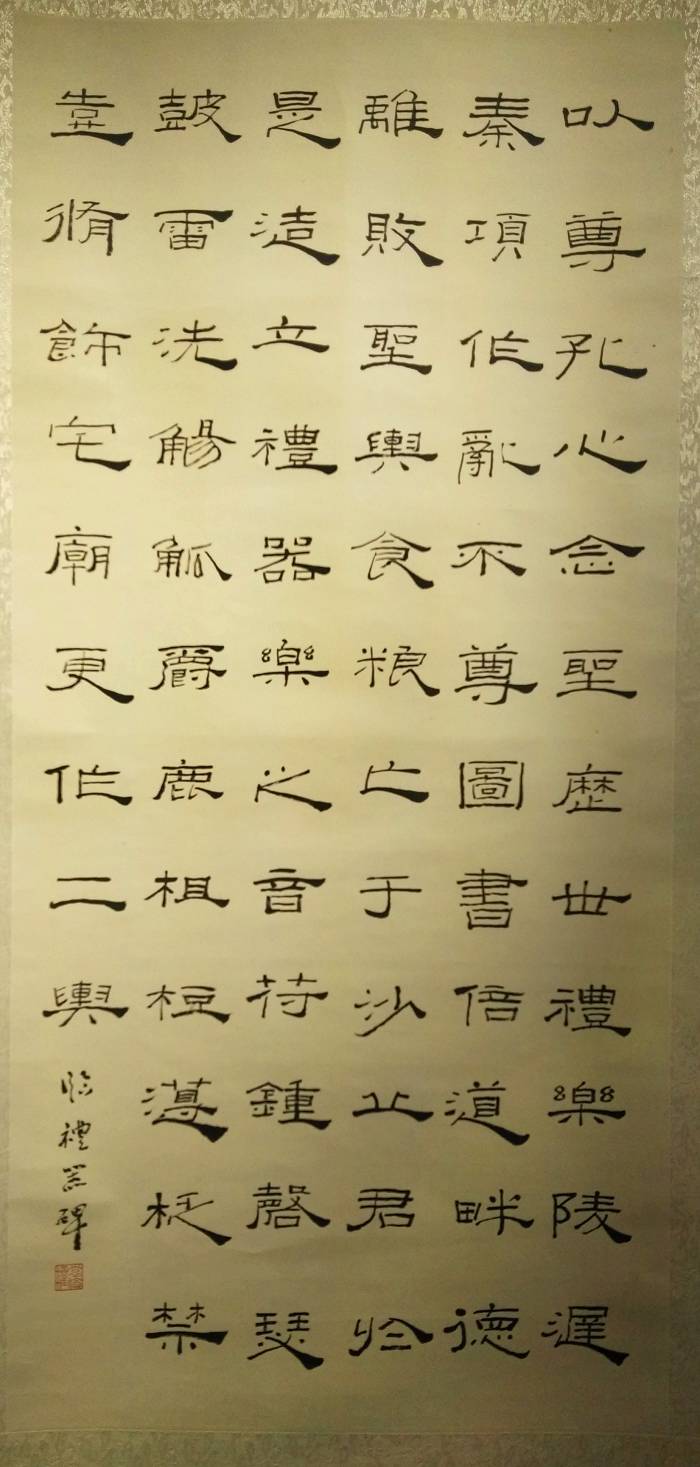 以尊孔心念聖歷世禮樂陵遲
秦項作亂不尊圖書倍道畔德
離敗聖輿食粮亡于沙丘君於
是造立禮器樂之音符鍾磬瑟
皷雷洗觴觚爵鹿柤梪籩柉禁
壺脩飾宅廟更作二輿
臨禮器碑